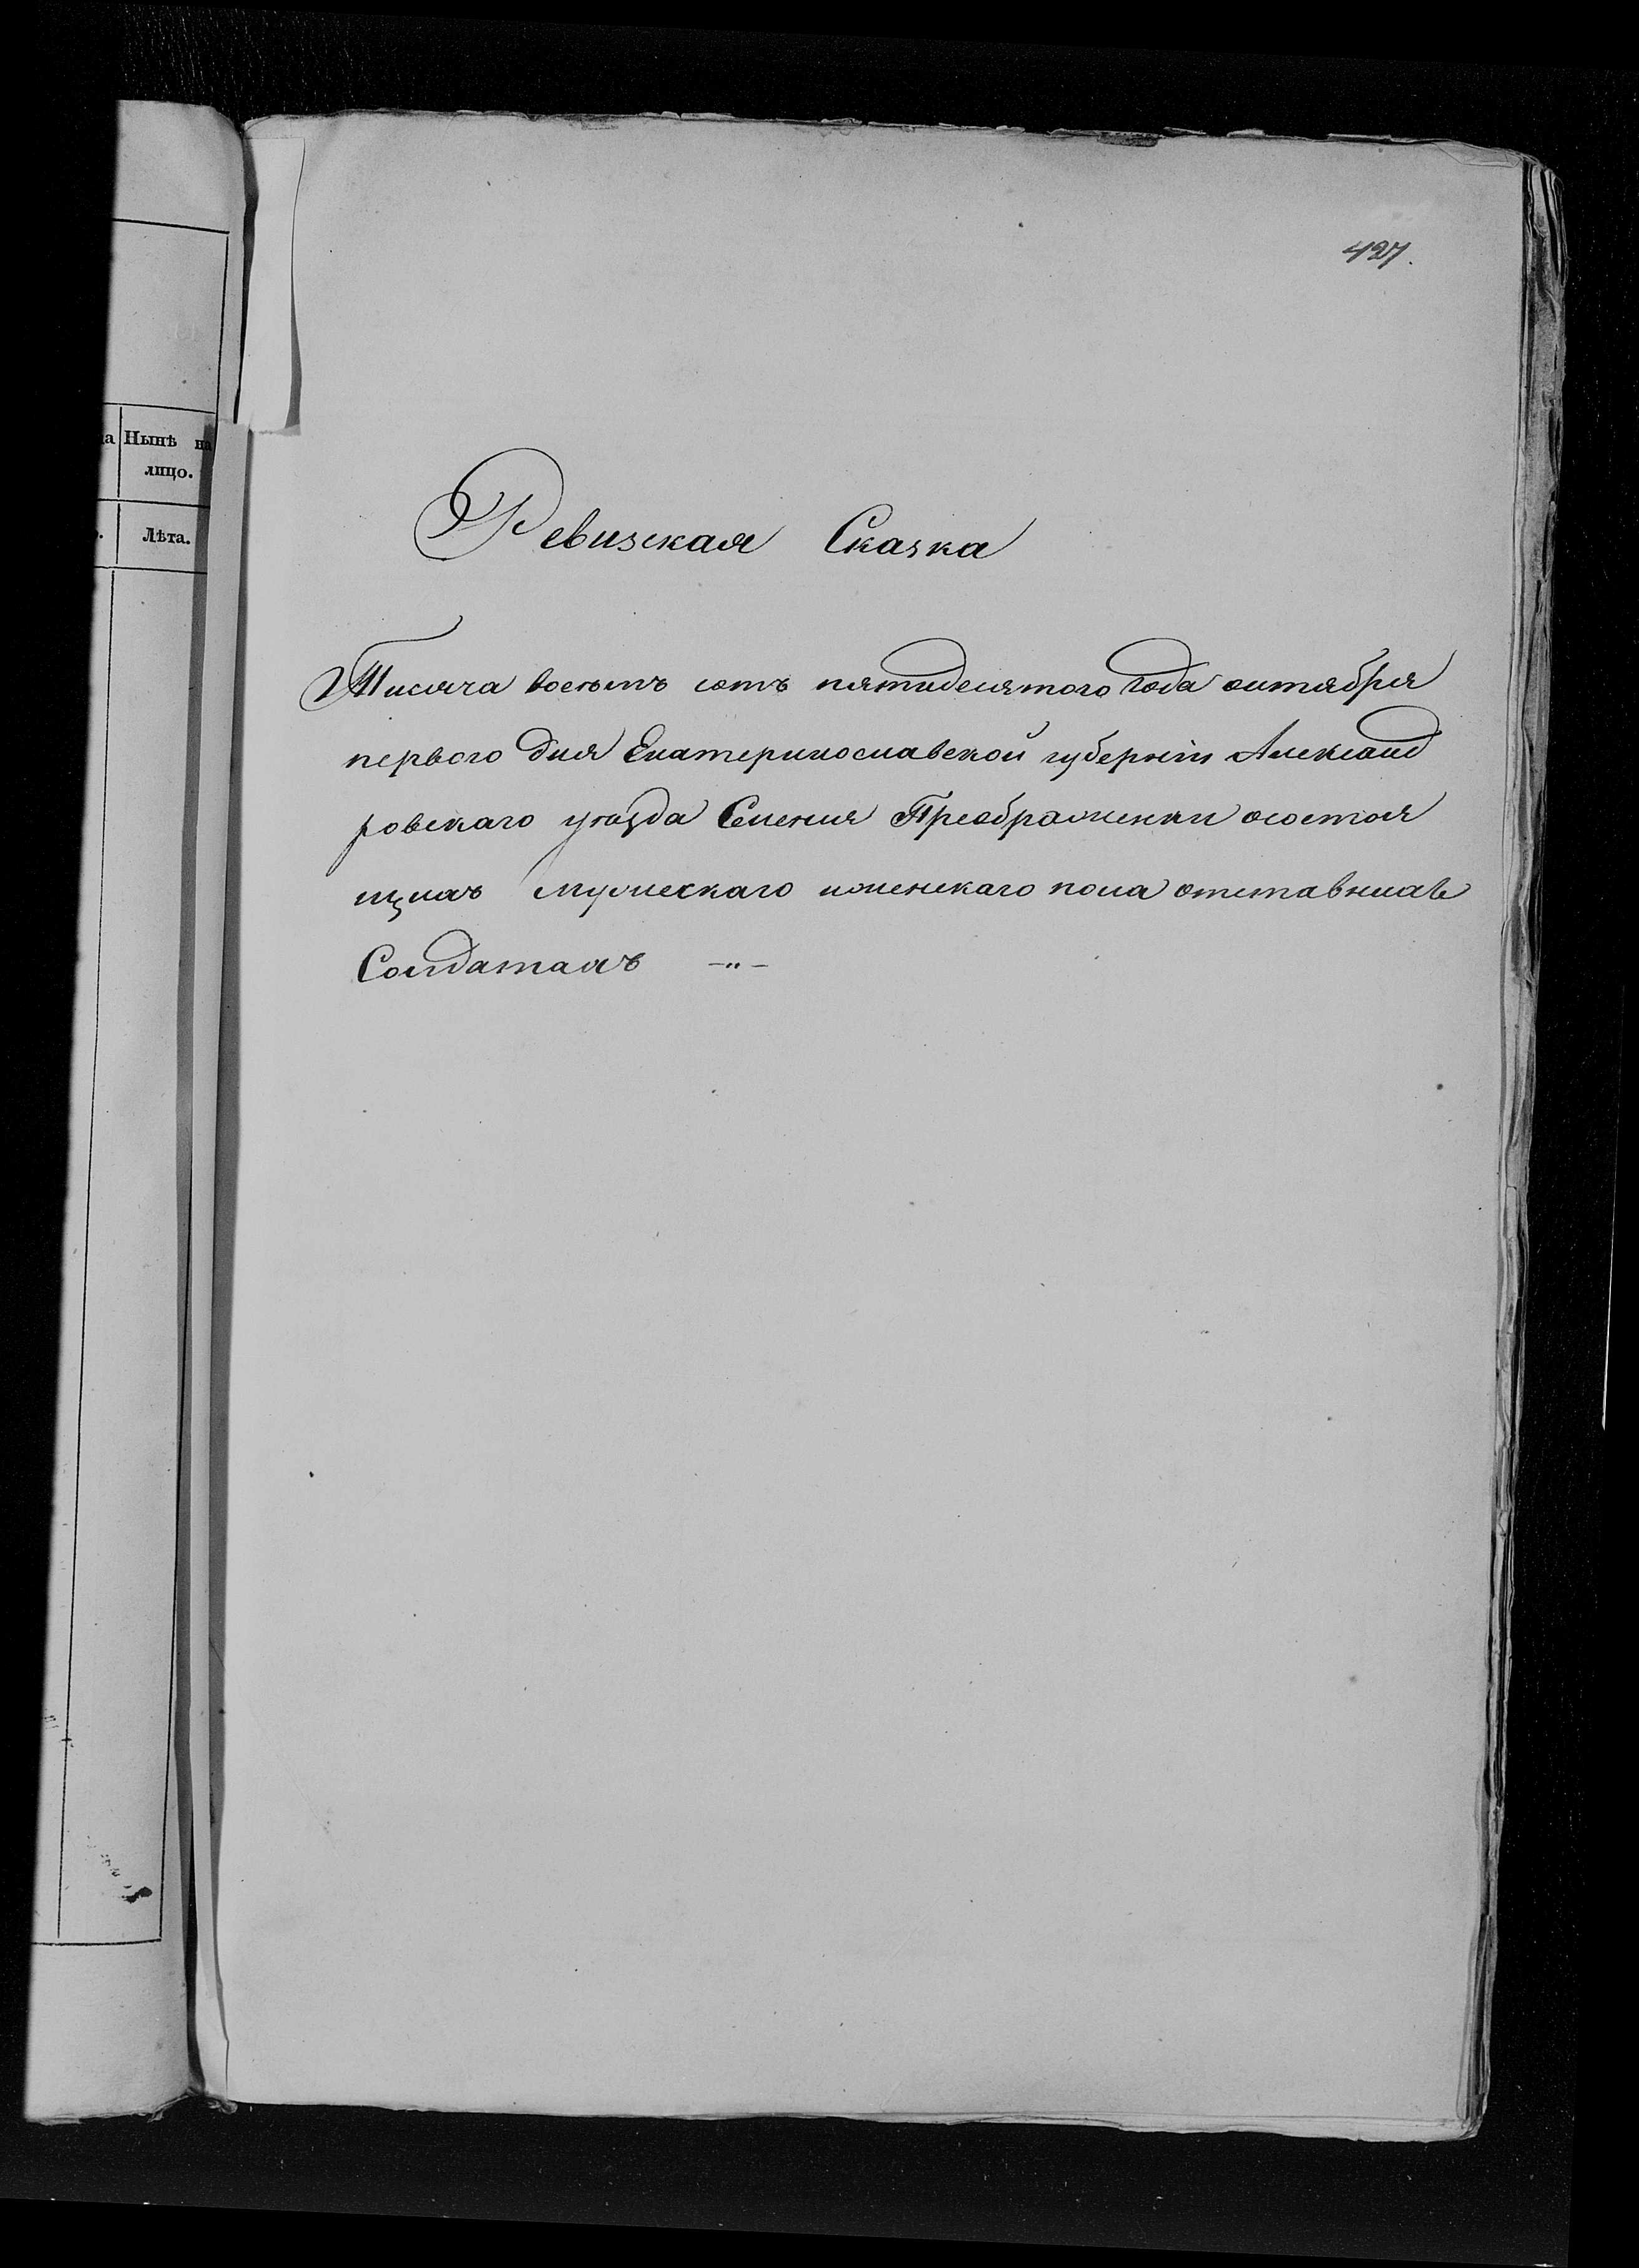 427.
на Нынѣ на
лицо.
Лѣта.
Ревизская Сказка
Тисяча восемъ сотъ пятидесятого года октября
первого дня Екатеринославской губерніи Александ
ровскаго уезда Селения Преображенки осостоя
щихъ мужескаго иженскаго пола отставныхъ
Солдатахъ -"-